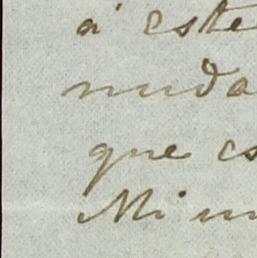 á este
muda
que es
Mi